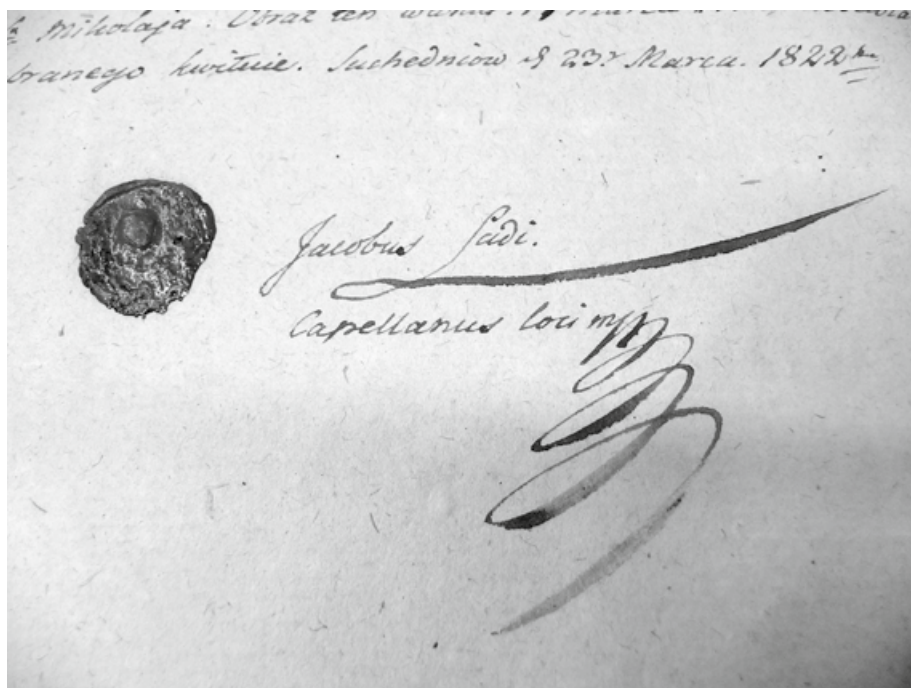 Mikołaja. Obraz ten
branego kwituie. Suchedniow d 23 Marca. 1822
Jacobus
Capellanus loci mp